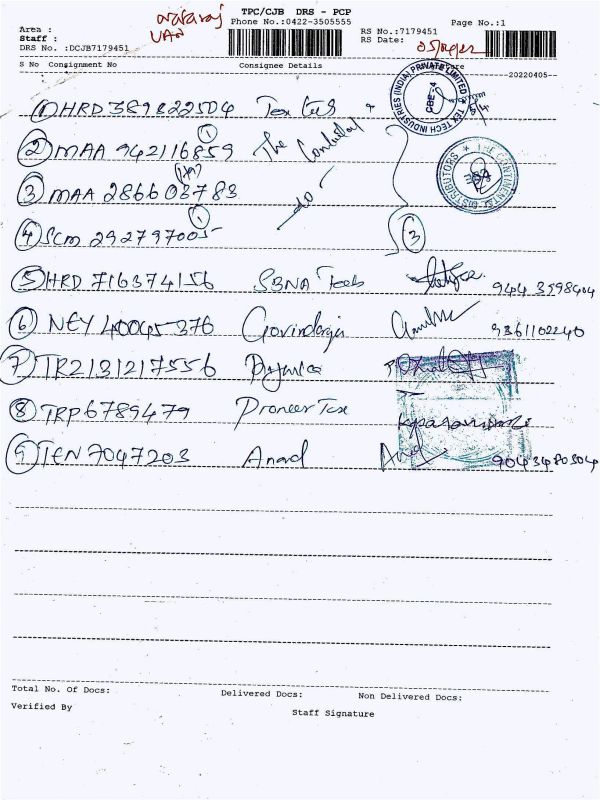 TPC/CJB DRS - PCP
Phone No.:0422-3505555
Page No.:1
Area :
VAN
RS No.:7179451
Staff :
RS Date:
DRS No. :DCJB7179451
S No Consignment No Consignee Details
20220405
1 HRD389822504 Tex tech
TEX TECH INDUSTRIES (INDIA) PRIVATE LIMITED
CBE-4
2 MAA 942116859 The Continental
1
THE CONTINENTAL DISTRIBUTORS
3 MAA 286603783 do
4 SCM 292797005
1
3
5 HRD 716374156 SBNA Tools 944 3598404
6 NEY 40045376 Govindaraja 9361102240
7 TR2131217556
8 TRP6789479 Pioneer Tex
9 TEN 7047203 Anand 9043480504
Total No. Of Docs: Delivered Docs: Non Delivered Docs:
Verified By
Staff Signature